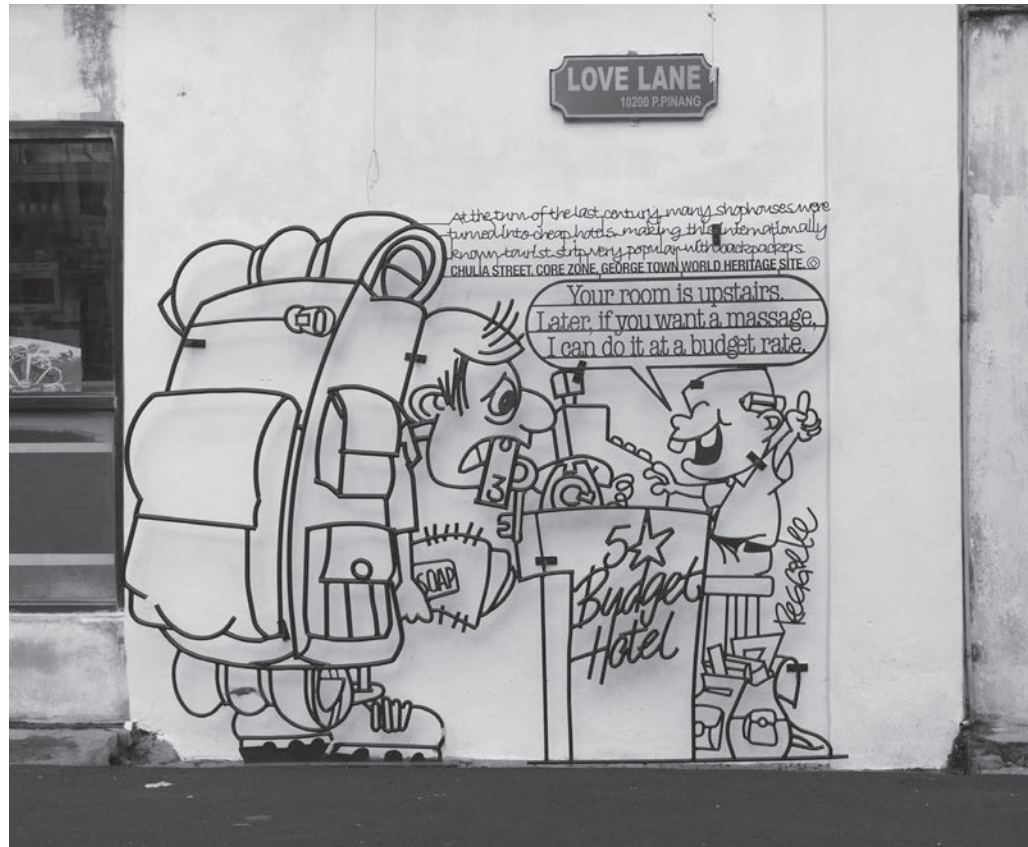 LOVE LANE
10200 P.PINANG
At the turn of the last century, many shophouses were
turned into cheap hotels making this internationally
known tourist strip very popular with backpackers.
CHULIA STREET. CORE ZONE, GEORGE TOWN WORLD HERITAGE SITE.
Your room is upstairs.
Later, if you want a massage,
I can do it at a budget rate.
3
SOAP
5
Budget
Hotel
Reggie Lee